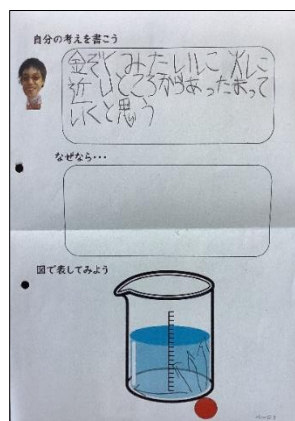 自分の考えを書こう
金ぞくみたいに火に
近いところからあったまって
いくと思う
なぜなら・・・
図で表してみよう